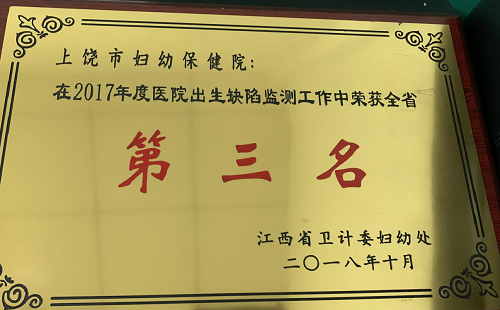 上饶市妇幼保健院:
在2017年度医院出生缺陷监测工作中荣获全省
第三名
江西省卫计委妇幼处
二〇一八年十月